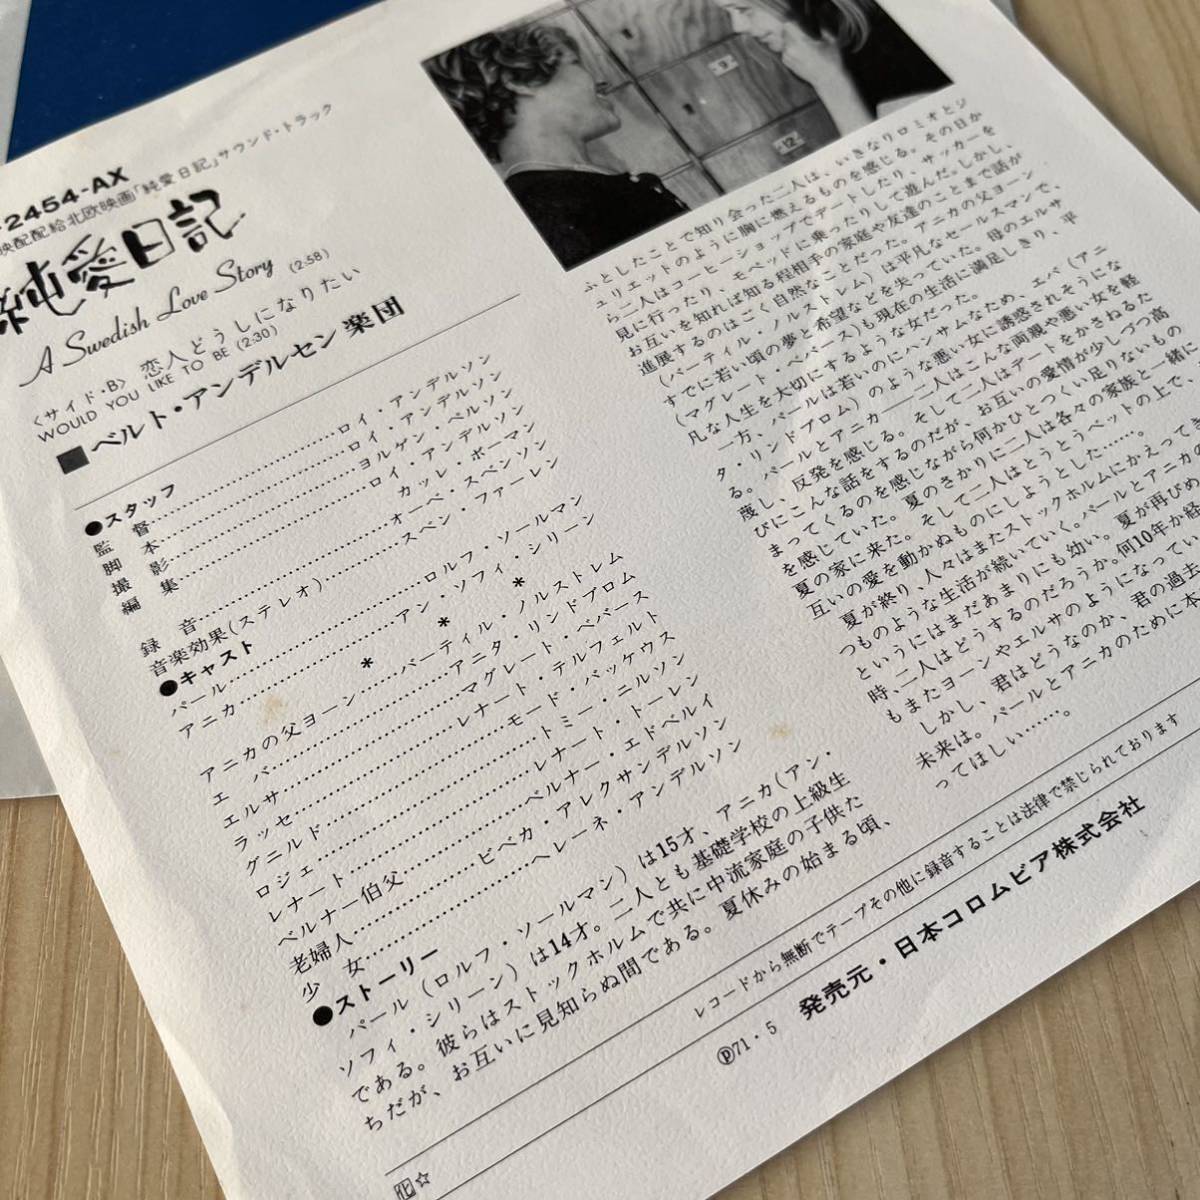 2454-AX
映配配給北欧映画「純愛日記」サウンド・トラック
純愛日記
A Swedish Love Story (2:58)
〈サイド・B〉 恋人どうしになりたい
WOULD YOU LIKE TO BE (2:30)
■ベルト・アンデルセン楽団
●スタッフ
監督……ロイ・アンデルソン
脚本……ロイ・アンデルソン
撮影……ヨルゲン・ペルソン
編集……ロイ・アンデルソン
カッレ・ボーマン
録音……オーベ・スベンソン
音楽効果(ステレオ)……スベン・ファーレン
●キャスト
パール……ロルフ・ソールマン
アニカ……アン・ソフィ・シリーン
* * *
アニカの父ヨーン……バーティル・ノルストレム
エバ……アニタ・リンドブロム
エルサ……マグレート・ベバース
ラッセ……レナート・テルフェルト
グニルド……モード・バッケウス
ロジェ……トミー・ニルソン
レナート……レナート・トーレン
ベルナー伯父……ベルナー・エドベルイ
老婦人……ビベカ・アレクサンデルソン
少女……ヘレーネ・アンデルソン
●ストーリー
パール(ロルフ・ソールマン)は15才、アニカ(アン・
ソフィ・シリーン)は14才。二人とも基礎学校の上級生
である。彼らはストックホルムで共に中流家庭の子供た
ちだが、お互いに見知らぬ間である。夏休みの始まる頃、
9
12
ふとしたことで知り会った二人は、いきなりロミオとジ
ュリエットのように胸に燃えるものを感じる。その日か
ら二人はコーヒーショップでデートしたり、サッカーを
見に行ったり、モペッドに乗ったりして遊んだ。しかし、
お互いを知れば知る程相手の家庭や友達のことまで話が
進展するのはごく自然なことだった。アニカの父ヨーン
(バーティル・ノルストレム)は平凡なセールスマンで、
すでに若い頃の夢と希望などを失っていた。母のエルサ
(マグレート・ベバース)も現在の生活に満足しきり、平
凡な人生を大切にするような女だった。
一方、パールは若いのにハンサムなため、エバ(アニ
タ・リンドブロム)のような悪い女に誘惑されそうにな
る。パールとアニカ――二人はこんな両親や悪い女を軽
蔑し、反発を感じる。そして二人はデートをかさねるた
びにこんな話をするのだが、お互いの愛情が少しづつ高
まってくるのを感じながら何かひとつくい足りないもの
を感じていた。夏のさかりに二人は各々の家族と一緒に
夏の家に来た。そして二人はとうとうベットの上で、
互いの愛を動かぬものにしようとした……。
夏が終り、人々はまたストックホルムにかえってき
つものような生活が続いていく。パールとアニカの
というにはまだあまりにも幼い。夏が再びめ
時、二人はどうするのだろうか。何10年か経
もまたヨーンやエルサのようになってい
しかし、君はどうなのか、君の過去
未来は。パールとアニカのために本
ってほしい……。
レコードから無断でテープその他に録音することは法律で禁じられております
Ⓟ71・5 発売元・日本コロムビア株式会社
化☆